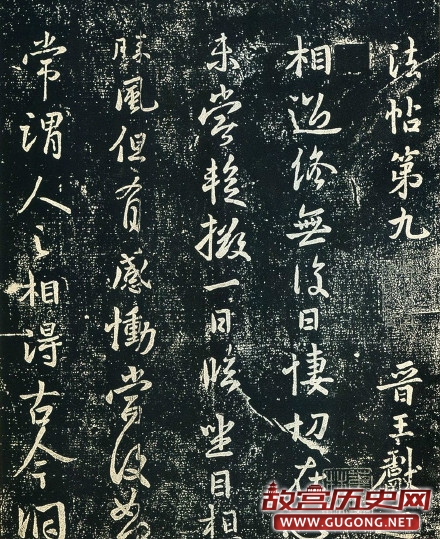 法帖第九 晉王獻
相過終無復日悽切在
未嘗暫掇一日臨坐目想
勝風但有感慟當復如
常謂人之相得古今洞
故宫历史网
WWW.GUGONG.NET